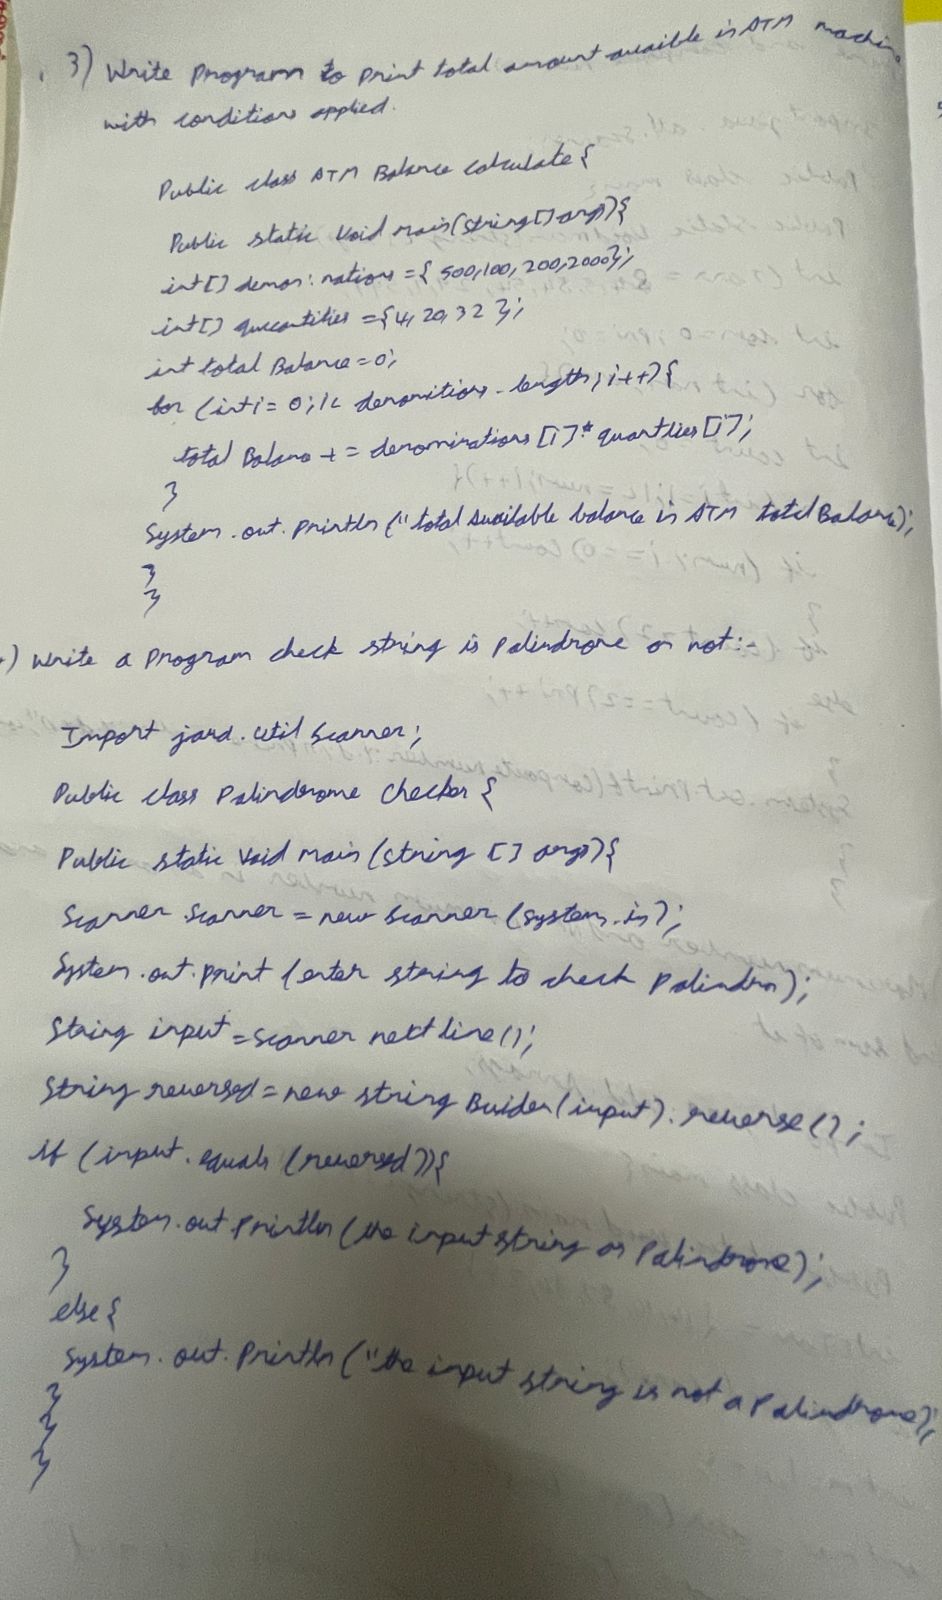 3) Write Program to print total amount avaible in ATM machine
with conditions applied.
Public class ATM Balance calculate {
Public static void main(string[] args){
int[] demoni nations = { 500,100, 200,2000};
int[] quecantities = {4, 20, 32 };
int total Balance = 0;
for (int i = 0; i < denomitions . length; i++){
total Balano + = denominations [i] * quantlies [i];
}
System . out . Println ("total Available balance in ATM total Balance);
}
}
) Write a Program check string is Palindrome or not :-
Import java . util Scanner ;
Public class Palindrome Checker {
Public static void main (string [] args){
Scanner Scanner = new Scanner (System . in);
System . out . print (enter string to check Palindrn);
String input = Scanner next line ();
String reversed = new string Buider (input) . reverse () ;
if (input . equals (reversed)){
System . out Println (the input string or Palindrone);
}
else {
System . out . Println ("the input string is not a Palindrone);
}
}
}